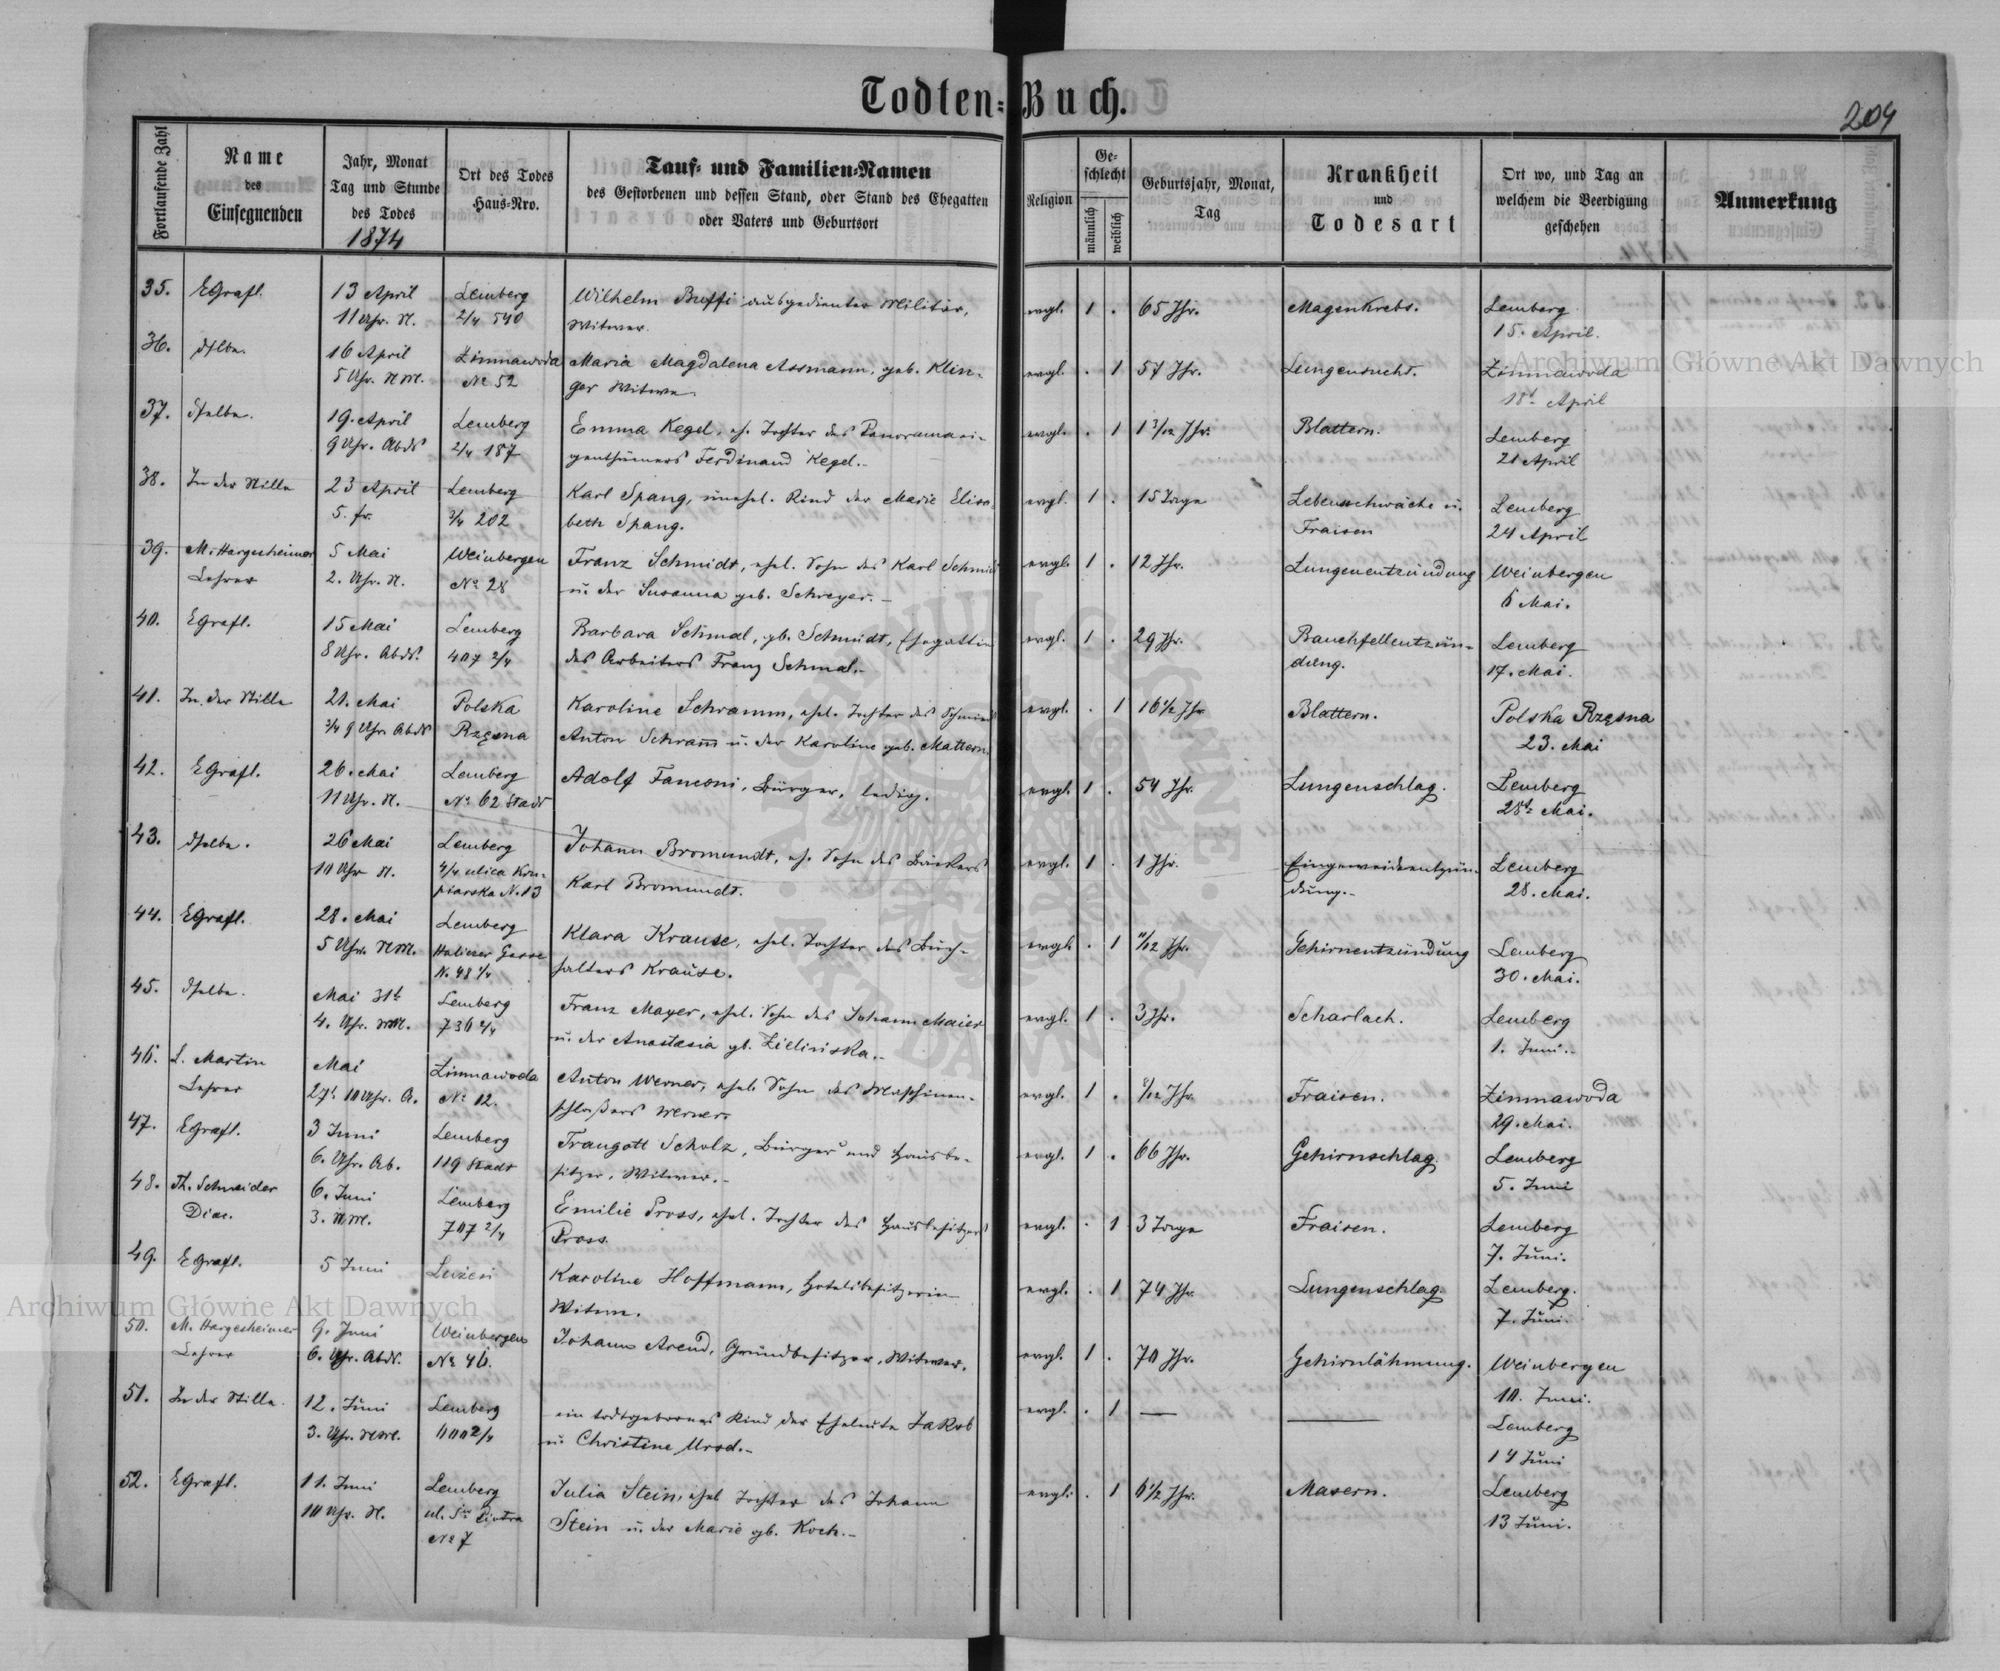 Todten-Buch.
204
Fortlaufende Zahl
Name
des
Einsegnenden
Jahr, Monat
Tag und Stunde
des Todes
1874
Ort des Todes
Haus-Nro.
Tauf- und Familien-Namen
des Gestorbenen und dessen Stand, oder Stand des Ehegatten
oder Vaters und Geburtsort
Religion
Geschlecht
männlich
weiblich
Geburtsjahr, Monat,
Tag
Krankheit
und
Todesart
Ort wo, und Tag an
welchem die Beerdigung
geschehen
Anmerkung
35. EGrafl. 13 April Lemberg Wilhelm Buffi ausgedienter Militär, evgl. 1 . 65 Jhr. Magenkrebs. Lemberg
11 Uhr. N. 2/4 540 Witwer. 15. April.
36. dslbe. 16 April Zimnawoda Maria Magdalena Assmann, geb. Klin- evgl. . 1 57 Jhr. Lungensucht. Zimnawoda
5 Uhr. NM. No 52 ger Witwe. 18t April
37. dselbe. 19. April Lemberg Emma Kegel, eh. Tochter des Panoramaei- evgl. . 1 1 3/12 Jhr. Blattern. Lemberg
9 Uhr. Abds 2/4 187 genthümers Ferdinand Kegel.- 21 April
38. In der Stille 23 April Lemberg Karl Spang, unehel. Kind der Marie Elisa- evgl. 1 . 15 Tage Lebensschwäche u. Lemberg
5. fr. 3/4 202 beth Spang. Fraisen 24 April
39. M. Hargesheimer 5 Mai Weinbergen Franz Schmidt, ehel. Sohn des Karl Schmidt evgl. 1 . 12 Jhr. Lungenentzündung Weinbergen
Lehrer 2. Uhr. N. No 28 u. der Susanna geb. Schreyer.- 6 Mai.
40. EGrafl. 15 Mai Lemberg Barbara Schmal, gb. Schmidt, Ehegattin evgl. 1 . 29 Jhr. Bauchfellentzün- Lemberg
8 Uhr. Abds. 407 2/4 des Arbeiters Franz Schmal.- dung. 17. Mai.
41. In der Stille 21. Mai Polska Karoline Schramm, ehel. Tochter des Schmied evgl. . 1 16 1/2 Jhr Blattern. Polska Rzęsna
3/4 9 Uhr. Abds Rzęsna Anton Schram̅ u. der Karoline geb. Mattern. 23. Mai
42. EGrafl. 26. Mai Lemberg Adolf Fanconi, Bürger, ledig. evgl. 1 . 54 Jhr. Lungenschlag. Lemberg
11 Uhr. N. No 62 Stadt 28t Mai.
43. dselbe. 26 Mai Lemberg Johann Bromundt, eh. Sohn des Bäckers evgl. 1 . 1 Jhr. Eingeweidentzün- Lemberg
10 Uhr N. 4/4 ulica Kon- Karl Bromundt. dung.- 28. Mai.
piarska N. 13
44. EGrafl. 28. Mai Lemberg Klara Krause, ehel. Tochter des Buch- evgl. . 1 11/12 Jhr. Gehirnentzündung Lemberg
5 Uhr. NM. Halicier Gasse halters Krause. 30. Mai.
N. 48 1/4
45. dselbe. Mai 31t Lemberg Franz Mayer, ehel. Sohn des Johann Maier evgl. 1 . 3 Jhr. Scharlach. Lemberg
4. Uhr. NM. 736 2/4 u. der Anastasia gb. Zielińska.- 1. Juni.-
46. L. Martin Mai Zimnawoda Anton Werner, ehel. Sohn des Maschinen- evgl. 1 . /12 Jhr. Fraisen. Zimnawoda
Lehrer 27t 10 Uhr. A. No 12. schloßers Werner. 29. Mai.
47. EGrafl. 3 Juni Lemberg Traugott Scholz, Bürger und Hausbe- evgl. 1 . 66 Jhr. Gehirnschlag. Lemberg
6. Uhr. Ab. 119 Stadt sitzer, Witwer.- 5. Juni
48. Th. Schneider 6. Juni Lemberg Emilie Pross, ehel. Tochter des Hausbesitzers evgl. . 1 3 Tage Fraisen. Lemberg
Diac. 3. NM. 707 2/4 Pross. 7. Juni.
49. EGrafl. 5 Juni Karoline Hoffmann, Hotelbesitzerin evgl. . 1 74 Jhr. Lungenschlag. Lemberg.
Witwe. 7. Juni.
50. M. Hargesheimer 9. Juni Weinbergen Johann Arend, Grundbesitzer, Witwer. evgl. 1 . 70 Jhr. Gehirnlähmung. Weinbergen
Lehrer 6. Uhr. Abds. No 46. 10. Juni.
51. In der Stille. 12. Juni Lemberg ein todtgeborenes Kind der Eheleute Jakob evgl. . 1 — — Lemberg
3. Uhr. NM. 600 2/4 u. Christine Mrod.- 14 Juni
52. EGrafl. 11. Juni Lemberg Julia Stein, ehel Tochter des Johann evgl. . 1 6 1/2 Jhr. Masern. Lemberg
10 Uhr. N. ul. Piotra Stein u. der Marie gb. Koch.- 13 Juni.
No 7
Archiwum Główne Akt Dawnych
Archiwum Główne Akt Dawnych
ARCHIWUM GŁÓWNE AKT DAWNYCH